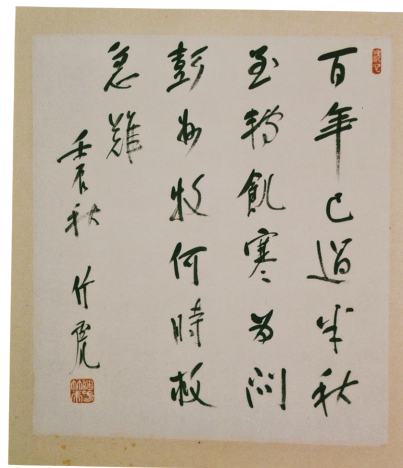 百年已過半秋
至轉飢寒為問
彭州牧何時救
急難
壬辰秋 竹